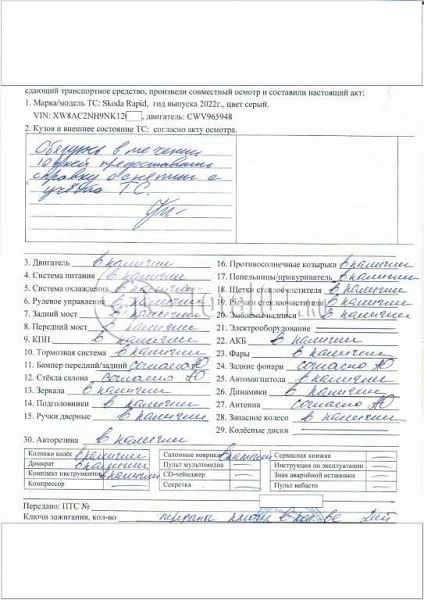 едающий транспортное средство, произвели совместный осмотр и составили настоящий акт:
1. Марка/модель ТС: Skoda Rapid, год выпуска 2022г., цвет серый.
VIN: XW8AC2NH9NK12 , двигатель: CWV965948
2. Кузов и внешнее состояние ТС: согласно акту осмотра.
Обязуюсь в течении
10 дней предоставить
справку о снятии с
учёта ТС.
3. Двигатель в наличии
4. Система питания в наличии
5. Система охлаждения в наличии
6. Рулевое управление в наличии
7. Задний мост в наличии
8. Передний мост в наличии
9. КПП в наличии
10. Тормозная система в наличии
11. Бампер передний/задний согласно АО
12. Стёкла салона согласно АО
13. Зеркала в наличии
14. Подголовники в наличии
15. Ручки дверные в наличии
16. Противосолнечные козырьки в наличии
17. Пепельницы/прикуриватель в наличии
18. Щетки стеклоочистителя в наличии
19. в наличии
20. Эмблемы/надписи в наличии
21. Электрооборудование
22. АКБ в наличии
23. Фары в наличии
24. Задние фонари согласно АО
25. Автомагнитола в наличии
26. Динамики в наличии
27. Антенна согласно АО
28. Запасное колесо в наличии
29. Колёсные диски
30. Авторезина в наличии
Колпаки колёс в наличии Салонные коврики в наличии Сервисная книжка
Домкрат в наличии Пульт мультимедиа Инструкция по эксплуатации
Комплект инструментов в наличии CD-чейнджер Знак аварийной остановки
Компрессор Секретка Пульт вебасто
Передано: ПТС №
Ключи зажигания, кол-во переданы в кол-ве